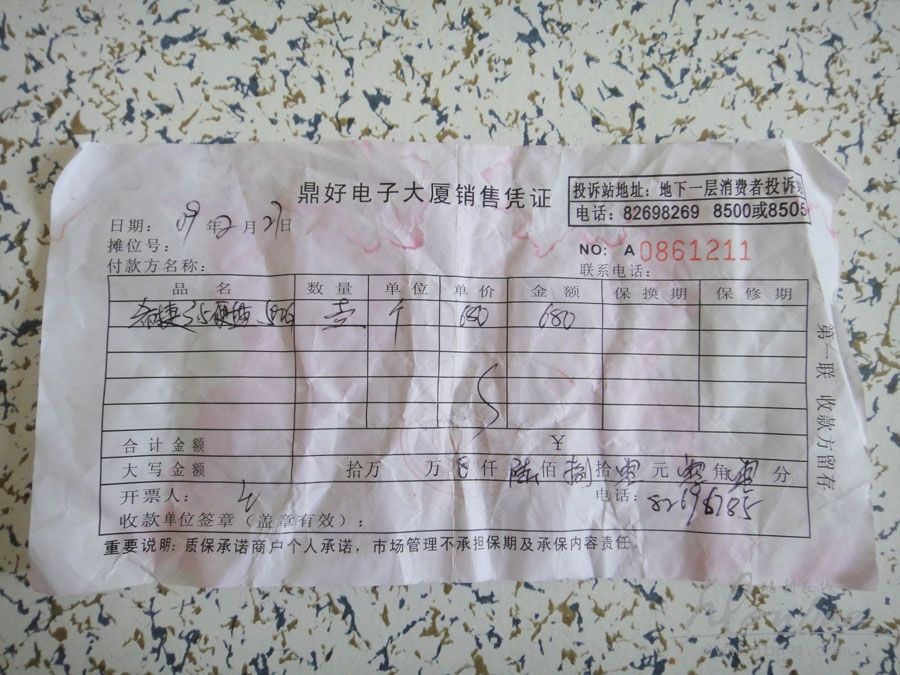 鼎好电子大厦销售凭证
投诉站地址：地下一层消费者投诉
电话：82698269 8500或8505
日期：09年2月21日
摊位号：
NO: A 0861211
付款方名称：
联系电话：
品名 数量 单位 单价 金额 保换期 保修期
希捷 壹 个 680 680
合计金额 ¥
大写金额 拾万 万 仟 陆佰捌拾零元零角零分
开票人：
电话：
收款单位签章（盖章有效）：
重要说明：质保承诺商户个人承诺，市场管理不承担保期及承保内容责任。
第一联 收款方留存